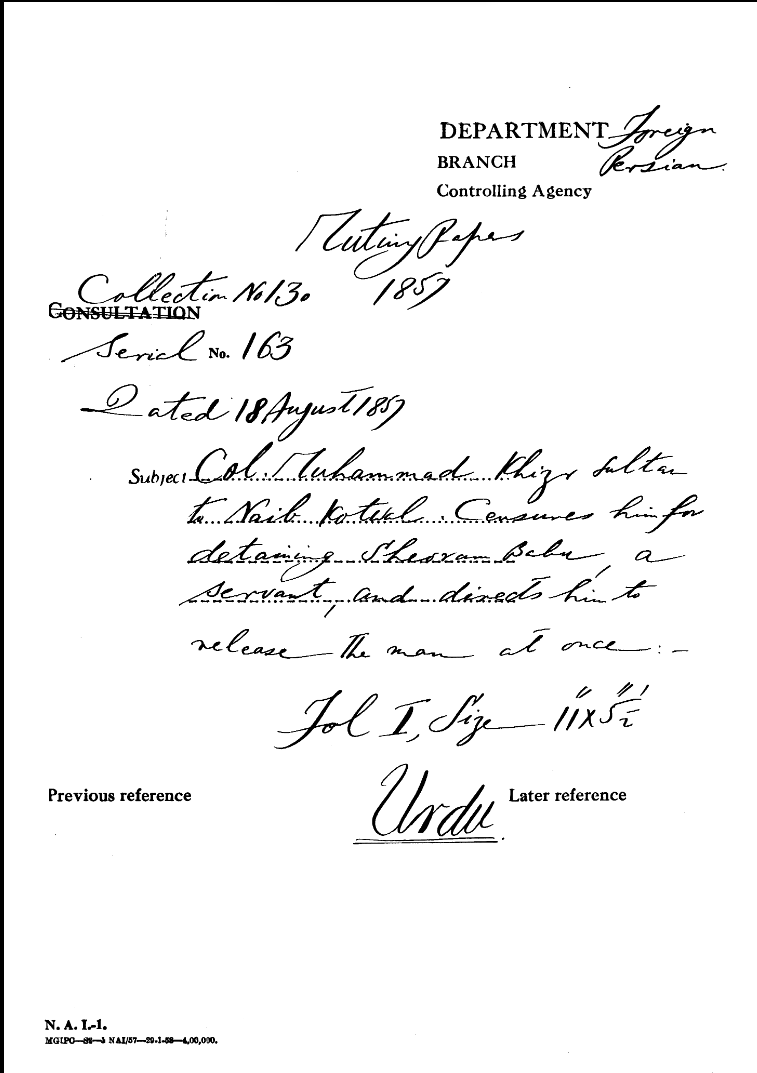 DEPARTMENT Foreign
BRANCH Persian
Controlling Agency
Mutiny Papers
Collection No 130 1857
CONSULTATION
Serial No. 163
Dated 18 August 1857
Subject Col. Muhammad Khizr Sultan
to Naib Kotwal. Censures him for
detaining Sheoram Babu, a
servant, and directs him to
release the man at once :-
Fol I, Size 11"x5½"
Previous reference Urdu Later reference
N. A. I.-1.
NAI/57—29-1-58—4,00,000.